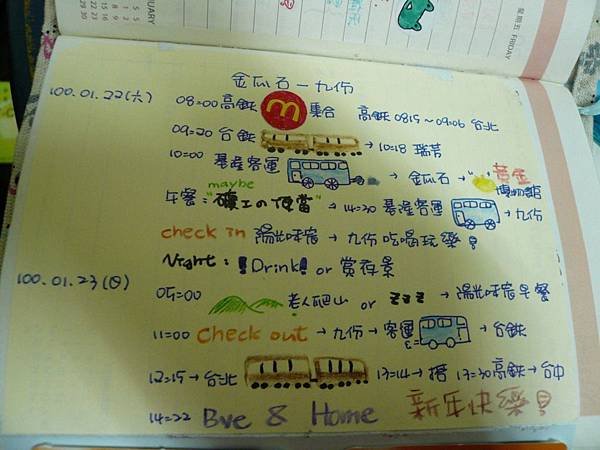 星期五 FRIDAY
金瓜石－九份
100.01.22(六) 08:00 高鉄 m 集合 高鉄 0815～09:06 台北
09:20 台鉄 → 10:18 瑞芳
10:00 基隆客運 → 金瓜石 → "黃金博物館
maybe
午餐:"礦工の便當" → 14:30 基隆客運 → 九份
check in 陽光味宿 → 九份吃喝玩樂!
Night: !Drink! or 賞夜景
100.01.23(日)
05:00 老人爬山 or zzz → 陽光味宿早餐
11:00 Check out → 九份 → 客運 → 台鉄
12:15 → 台北 13:14 → 搭 13:30 高鉄 → 台中
14:22 Bye & Home 新年快樂